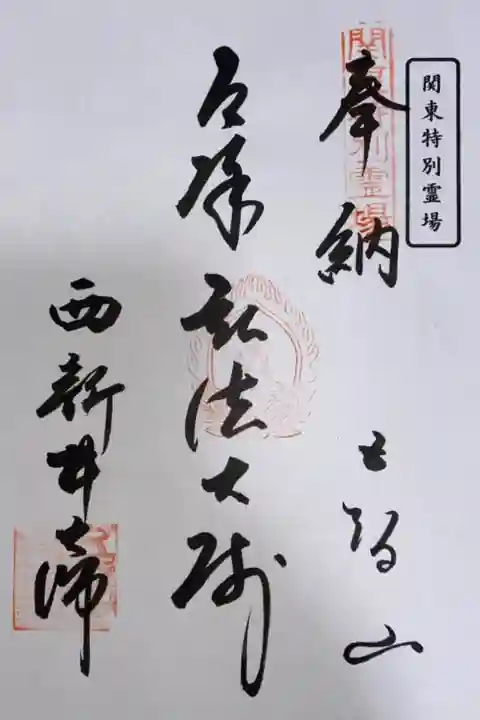 関東特別霊場
関東特別霊場
奉納
五智山
厄除 弘法大師
西新井大師